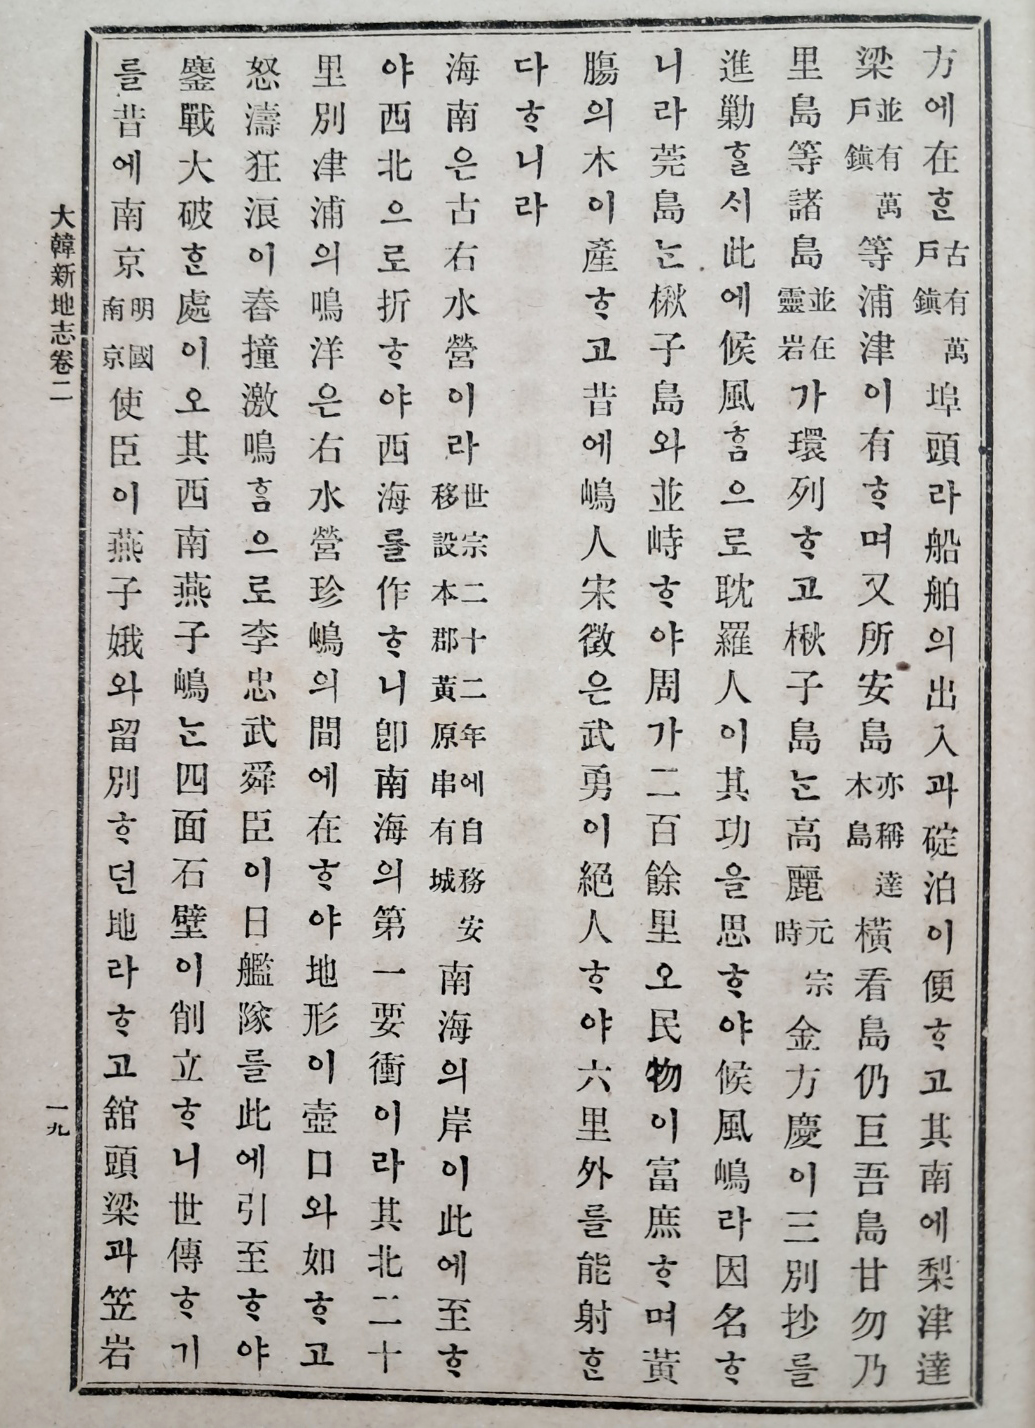 方에在ᄒᆞᆫ古有萬戶鎭埠頭라船舶의出入과碇泊이便ᄒᆞ고其南에梨津達
梁並有萬戶鎭等浦津이有ᄒᆞ며又所安島亦稱達木島橫看島仍巨吾島甘勿乃
里島等諸島並在靈岩가環列ᄒᆞ고楸子島ᄂᆞᆫ高麗元宗時金方慶이三別抄를
進勦ᄒᆞᆯᄉᆡ此에候風ᄒᆞᆷ으로耽羅人이其功을思ᄒᆞ야候風嶋라因名ᄒᆞ
니라莞島ᄂᆞᆫ楸子島와並峙ᄒᆞ야周가二百餘里오民物이富庶ᄒᆞ며黃
膓의木이產ᄒᆞ고昔에嶋人宋徵은武勇이絕人ᄒᆞ야六里外를能射ᄒᆞᆫ
다ᄒᆞ니라
海南은古右水營이라世宗二十二年에自務安移設本郡黃原串有城南海의岸이此에至ᄒᆞ
야西北으로折ᄒᆞ야西海를作ᄒᆞ니卽南海의第一要衝이라其北二十
里別津浦의鳴洋은右水營珍嶋의間에在ᄒᆞ야地形이壺口와如ᄒᆞ고
怒濤狂浪이舂撞激鳴ᄒᆞᆷ으로李忠武舜臣이日艦隊를此에引至ᄒᆞ야
鏖戰大破ᄒᆞᆫ處이오其西南燕子嶋ᄂᆞᆫ四面石壁이削立ᄒᆞ니世傳ᄒᆞ기
를昔에南京明國南京使臣이燕子娥와留別ᄒᆞ던地라ᄒᆞ고舘頭梁과笠岩
大韓新地志卷二
一九